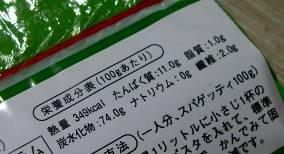 栄養成分表(100gあたり)
熱量 349kcal たんぱく質:11.0g 脂質:1.0g
炭水化物:74.0g ナトリウム:0g 繊維:2.0g
方法 (一人分、スパゲッティ100g)
1リットルに小さじ1杯の
スタを入れて、標準